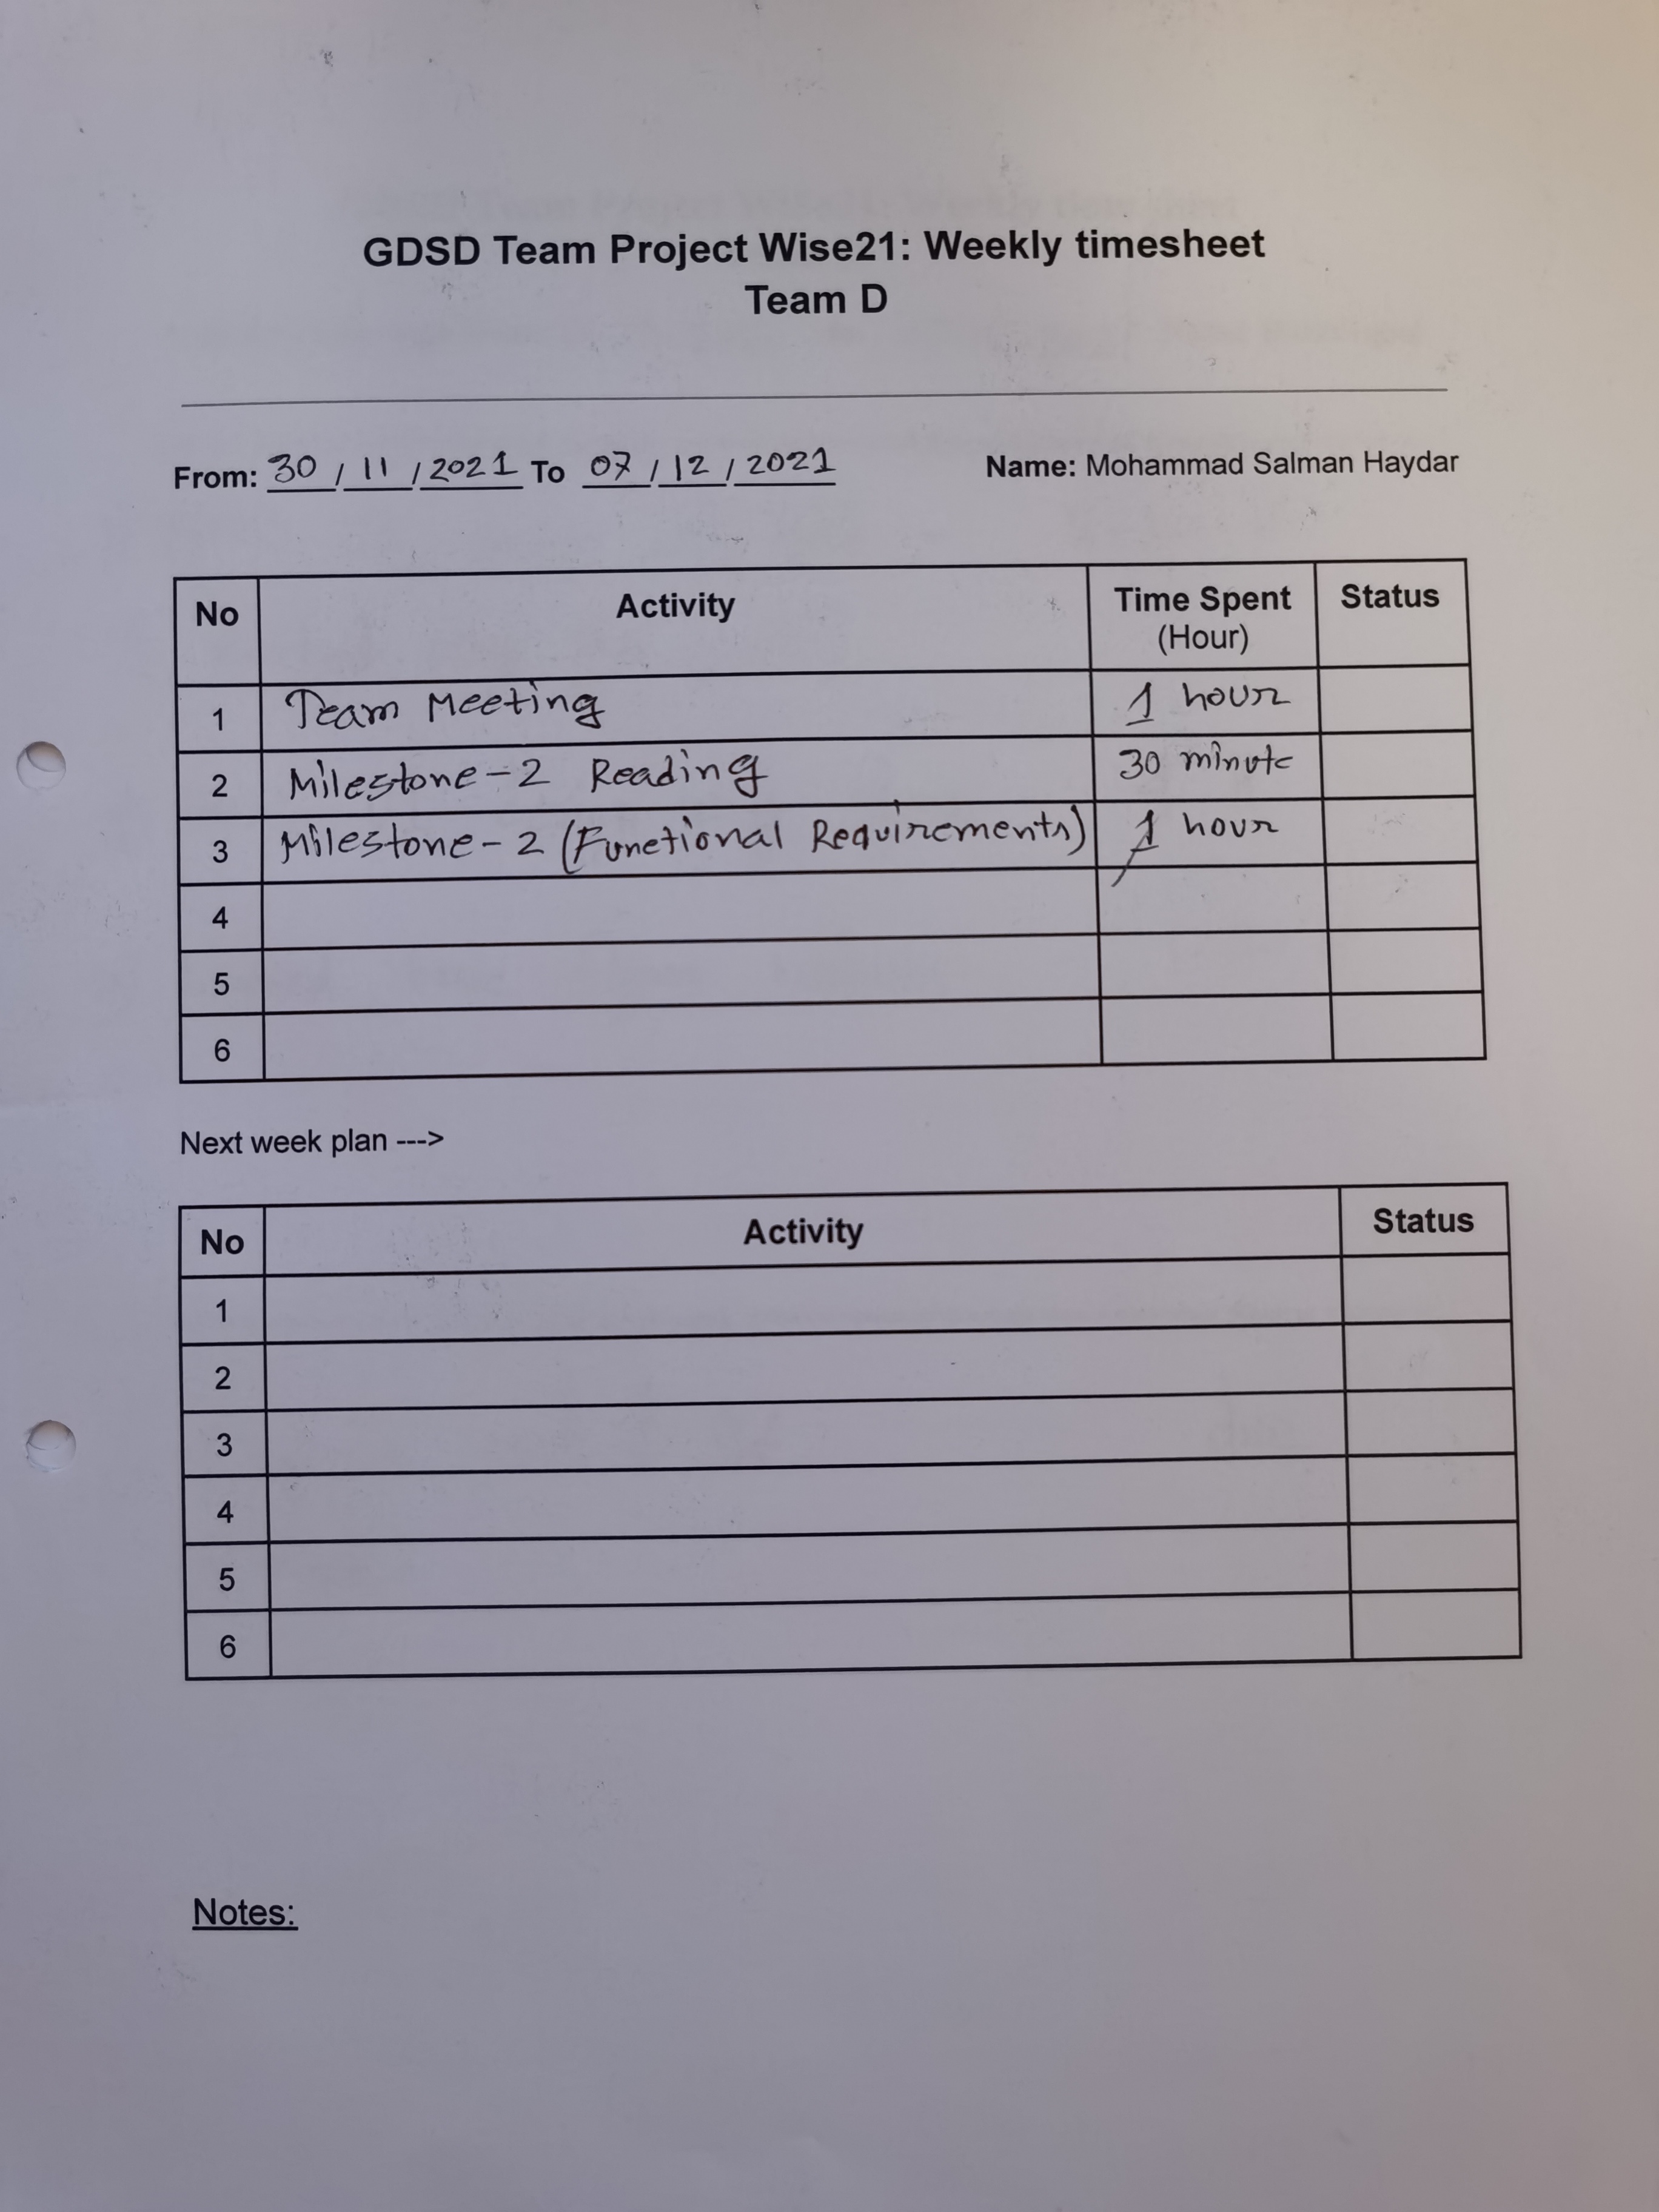 GDSD Team Project Wise21: Weekly timesheet
Team D
From: 30 / 11 / 2021 To 07 / 12 / 2021 Name: Mohammad Salman Haydar
No Activity Time Spent (Hour) Status
1 Team Meeting 1 hour
2 Milestone-2 Reading 30 minute
3 Milestone-2 (Functional Requirements) 1 hour
4
5
6
Next week plan --->
No Activity Status
1
2
3
4
5
6
Notes: